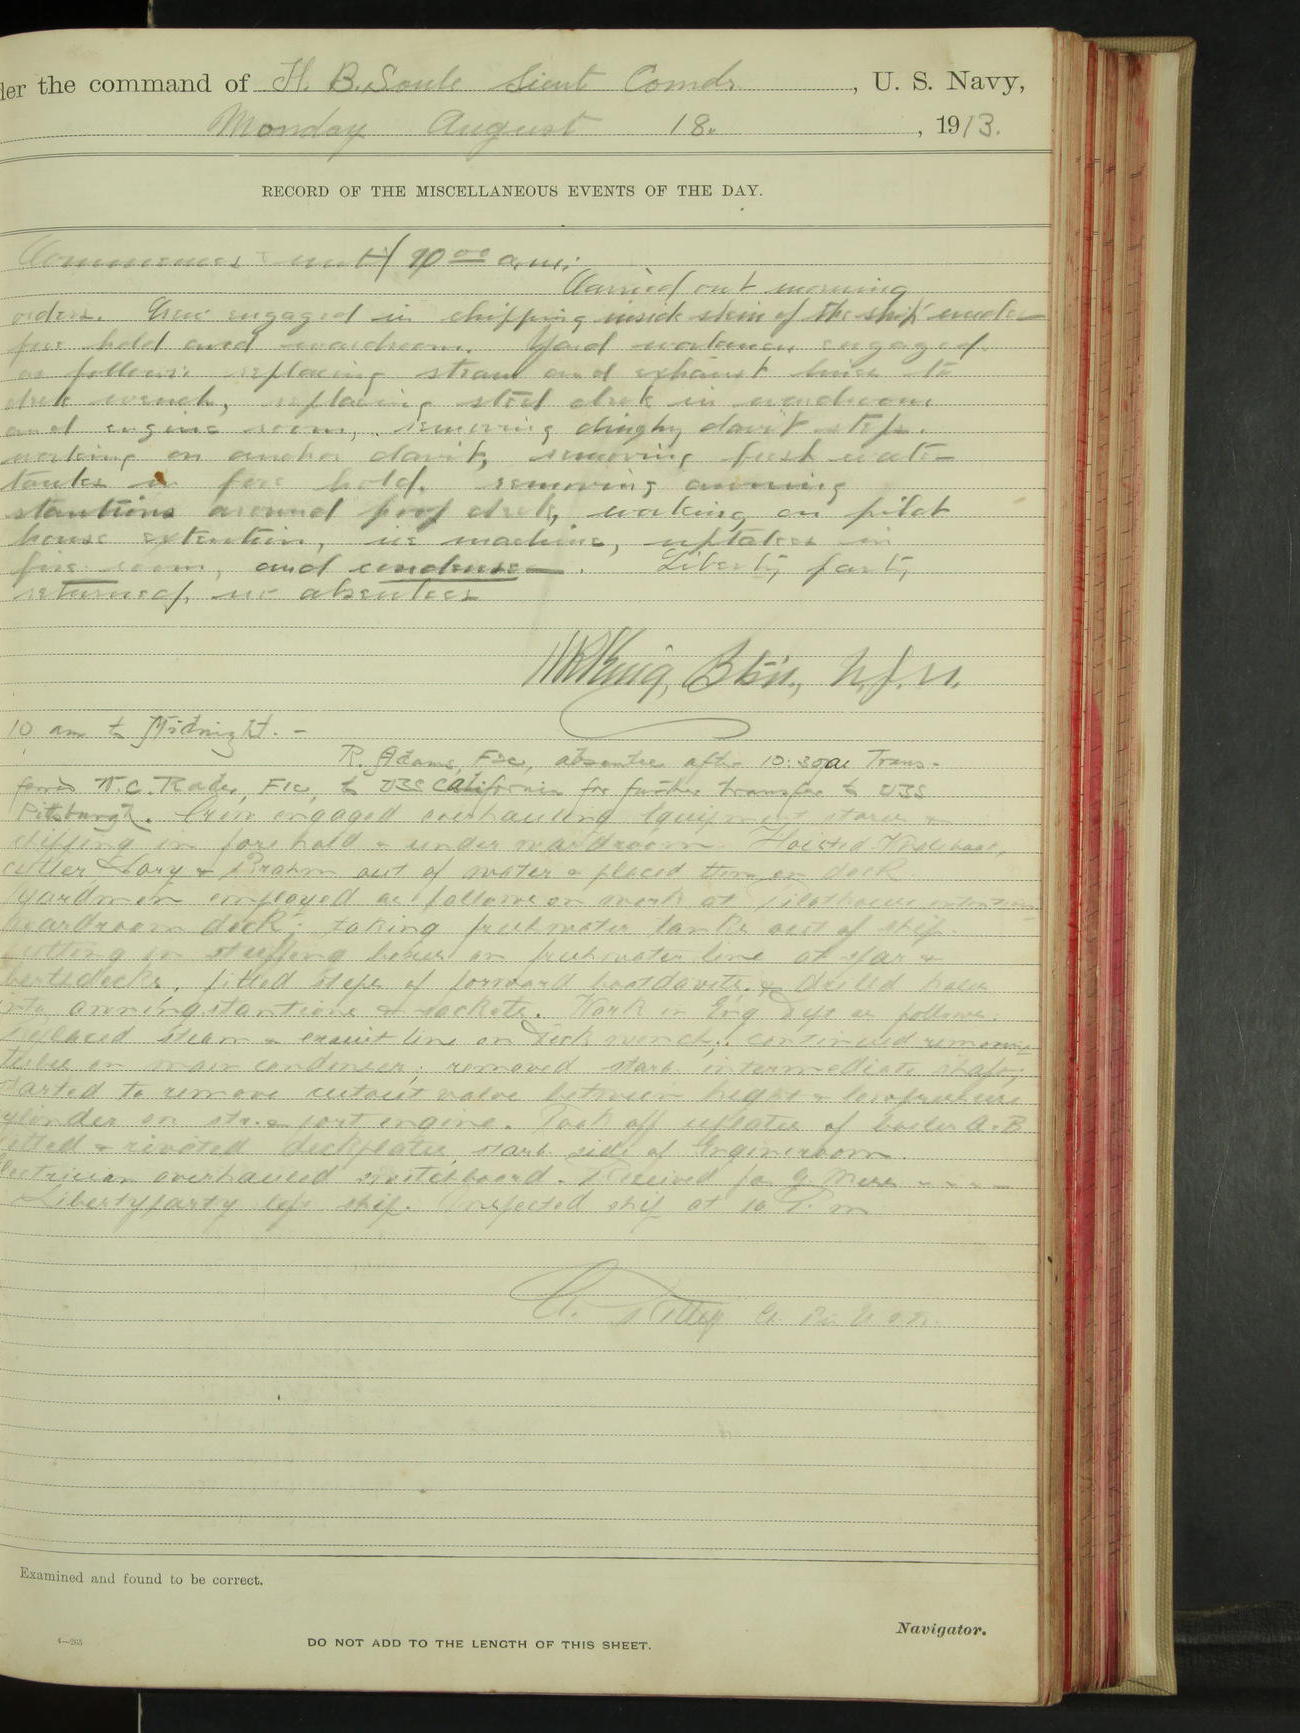 der the command of H. B. Soule Lieut Comdr. , U. S. Navy,
Monday August 18. , 1913.
RECORD OF THE MISCELLANEOUS EVENTS OF THE DAY.
Commences until 10 00 a.m:
Carried out morning
orders. Crew engaged in chipping inside skin of the ship under
fore hold and wardroom. Yard workmen engaged
as follows: replacing steam and exhaust lines to
deck wench, replacing steel deck in wardroom
and engine room, removing dinghy davit step.
working on anchor davit, removing fresh water
tanks in fore hold. removing awning
stantions around poop deck, working on pilot
house extention, ice machine, uptakes in
fire room, and condenser. Liberty party
returned, no absentees
Btsn., U.S.N.
10 am to Midnight. -
R. Adams, F2c, absentee after 10:30am Trans-
ferred W. C. Rader, F1c, to USS California for further transfer to USS
Pittsburgh. Crew engaged overhauling Equipment stores &
chipping in fore hold & under wardroom. Hoisted Whaleboat,
cutter Dory & out of water & placed them on deck
Yardmen employed as follows on work at Pilothouse extention
wardroom deck; taking freshwater tanks out of ship.
putting in stuffing boxes on freshwater line at spar &
berthdecks, fitted steps of forward boatdavits, & drilled holes
into awningstantions & sockets. Work in Eng. Dept as follows:
replaced steam & exaust line on Deck wench; continued removing
tubes on main condenser; removed starb. intermediate shaft;
started to remove cutout valve between high & lowpressure
cylinder on str. & port engine. Took off uptakes of boiler A & B
fitted & riveted deckplates, starb. side of Engineroom.
Electrician overhauled switchboard. Received for G Mess - - - -
Libertyparty left ship. Inspected ship at 10 P.m
Examined and found to be correct.
Navigator.
4—265
DO NOT ADD TO THE LENGTH OF THIS SHEET.